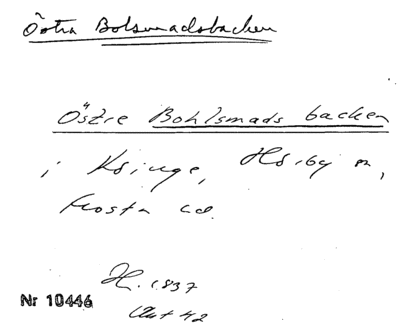 Östra Bolsmadsbacken
Östre Bohlsmads backen
i Ksinge, Hörby sn,
Frosta hd.
H. 1837
Akt 42
Nr 10446